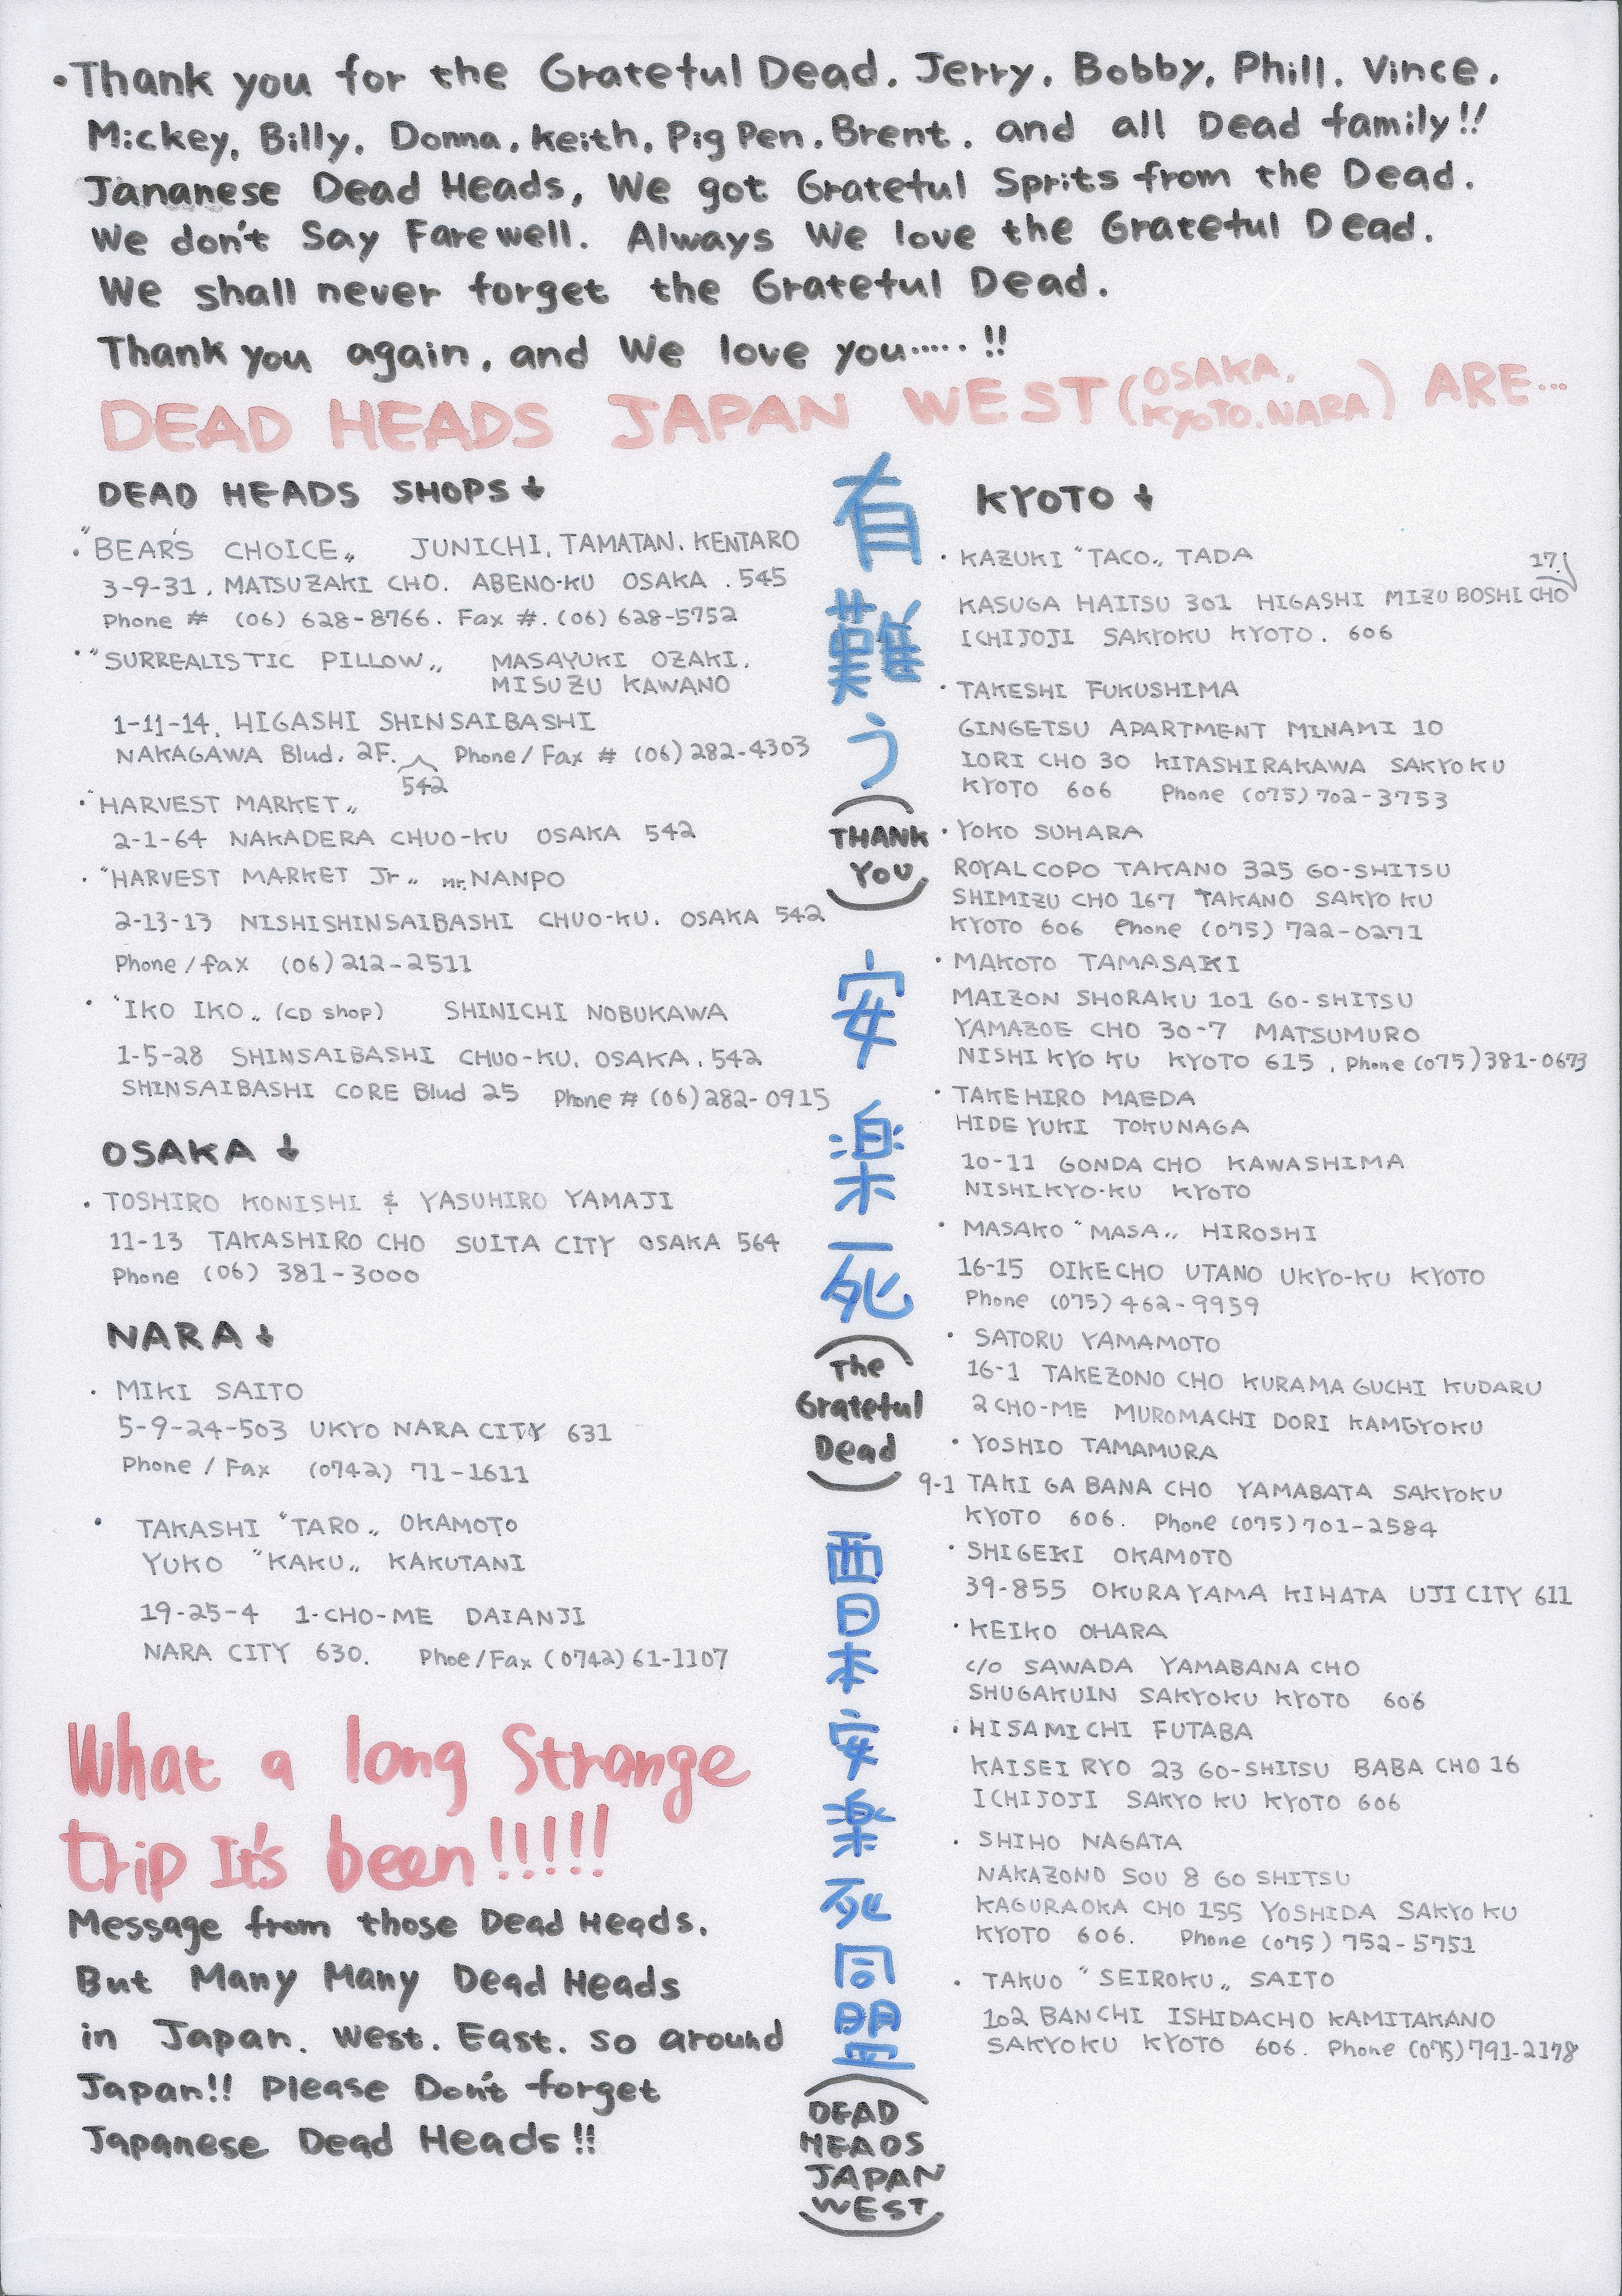 ·Thank you for the Grateful Dead. Jerry. Bobby. Phill. Vince.
Mickey. Billy. Donna. Keith. Pig Pen. Brent. and all Dead family!!
Jananese Dead Heads, We got Grateful Sprits from the Dead.
We don't Say Farewell. Always We love the Grateful Dead.
We shall never forget the Grateful Dead.
Thank you again, and We love you..... !!
DEAD HEADS JAPAN WEST (OSAKA. KYOTO. NARA) ARE...
DEAD HEADS SHOPS ↓
· "BEAR'S CHOICE" JUNICHI. TAMATAN. KENTARO
3-9-31. MATSUZAKI CHO. ABENO-KU OSAKA. 545
Phone # (06) 628-8766. Fax #. (06) 628-5752
· "SURREALISTIC PILLOW" MASAYUKI OZAKI.
MISUZU KAWANO
1-11-14. HIGASHI SHINSAIBASHI
NAKAGAWA Blud. 2F. 542 Phone/Fax # (06) 282-4303
· "HARVEST MARKET"
2-1-64 NAKADERA CHUO-KU OSAKA 542
· "HARVEST MARKET Jr" Mr. NANPO
2-13-13 NISHISHINSAIBASHI CHUO-KU. OSAKA 542
Phone/fax (06) 212-2511
· "IKO IKO" (CD shop) SHINICHI NOBUKAWA
1-5-28 SHINSAIBASHI CHUO-KU. OSAKA. 542
SHINSAIBASHI CORE Blud 25 Phone # (06) 282-0915
OSAKA ↓
· TOSHIRO KONISHI & YASUHIRO YAMAJI
11-13 TAKASHIRO CHO SUITA CITY OSAKA 564
Phone (06) 381-3000
NARA ↓
· MIKI SAITO
5-9-24-503 UKYO NARA CITY 631
Phone / Fax (0742) 71-1611
· TAKASHI "TARO" OKAMOTO
YUKO "KAKU" KAKUTANI
19-25-4 1-CHO-ME DAIANJI
NARA CITY 630. Phoe/Fax (0742) 61-1107
What a long Strange
trip It's been!!!!!
Message from those Dead Heads.
But Many Many Dead Heads
in Japan. West. East. so around
Japan!! Please Don't forget
Japanese Dead Heads!!
有難う
(THANK
YOU)
安楽死
(The
Grateful
Dead)
西日本安楽死同盟
(DEAD
HEADS
JAPAN
WEST)
KYOTO ↓
· KAZUKI "TACO" TADA
KASUGA HAITSU 301 HIGASHI MIZUBOSHI CHO 17.
ICHIJOJI SAKYOKU KYOTO. 606
· TAKESHI FUKUSHIMA
GINGETSU APARTMENT MINAMI 10
IORI CHO 30 KITASHIRAKAWA SAKYOKU
KYOTO 606 Phone (075) 702-3753
· YOKO SUHARA
ROYAL COPO TAKANO 325 GO-SHITSU
SHIMIZU CHO 167 TAKANO SAKYO KU
KYOTO 606 Phone (075) 722-0271
· MAKOTO TAMASAKI
MAIZON SHORAKU 101 GO-SHITSU
YAMAZOE CHO 30-7 MATSUMURO
NISHI KYO KU KYOTO 615. Phone (075) 381-0673
· TAKEHIRO MAEDA
HIDEYUKI TOKUNAGA
10-11 GONDA CHO KAWASHIMA
NISHI.KYO-KU KYOTO
· MASAKO "MASA" HIROSHI
16-15 OIKECHO UTANO UKYO-KU KYOTO
Phone (075) 462-9959
· SATORU YAMAMOTO
16-1 TAKEZONO CHO KURAMAGUCHI KUDARU
2 CHO-ME MUROMACHI DORI KAMGYOKU
· YOSHIO TAMAMURA
9-1 TAKI GA BANA CHO YAMABATA SAKYOKU
KYOTO 606. Phone (075) 701-2584
· SHIGEKI OKAMOTO
39-855 OKURAYAMA KIHATA UJI CITY 611
· KEIKO OHARA
c/o SAWADA YAMABANA CHO
SHUGAKUIN SAKYOKU KYOTO 606
· HISAMICHI FUTABA
KAISEI RYO 23 GO-SHITSU BABA CHO 16
ICHIJOJI SAKYO KU KYOTO 606
· SHIHO NAGATA
NAKAZONO SOU 8 GO SHITSU
KAGURAOKA CHO 155 YOSHIDA SAKYO KU
KYOTO 606. Phone (075) 752-5751
· TAKUO "SEIROKU" SAITO
102 BANCHI ISHIDACHO KAMITAKANO
SAKYOKU KYOTO 606. Phone (075) 791-2178